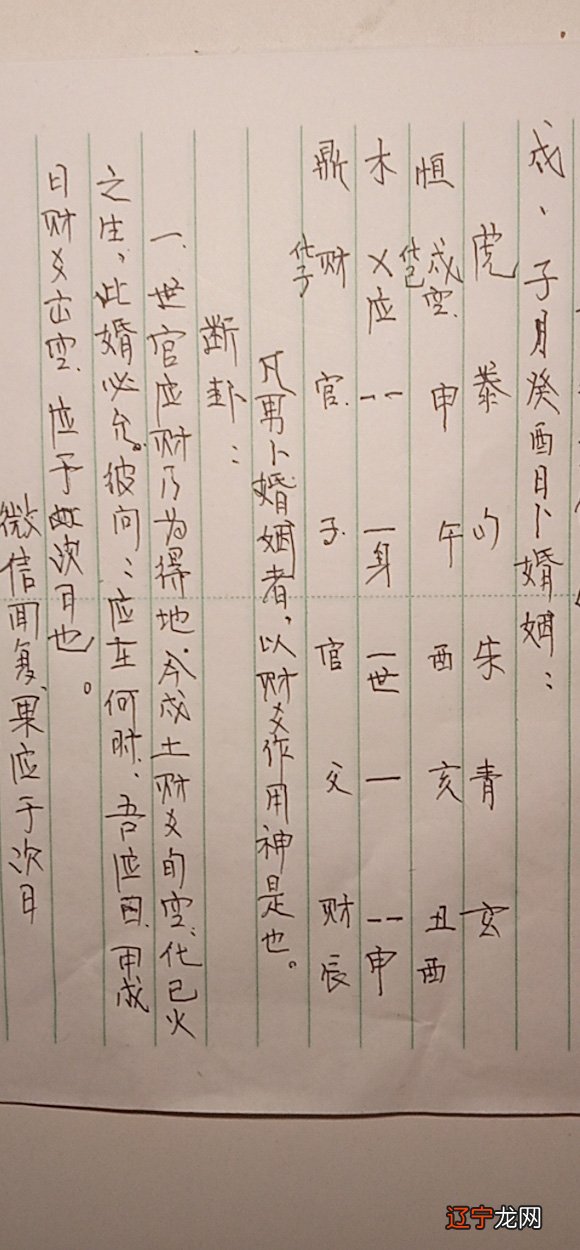 戌、子月癸酉日卜婚姻：
虎 泰 的 朱 青 玄
恒 戌空 化巳 申 午 酉 亥 丑 酉
木 乂应 -- 一身 一世 一 -- 申
鼎 财 化子 官 子 官 父 财 辰
凡男卜婚姻者，以财爻作用神是也。
断卦：
一、世官应财乃为得地，今戌土财爻旬空、化巳火
之生，此婚必允。彼问：应在何时，吾应曰，甲戌
日财爻出空，应于次日也。
微信回复，果应于次日
辽宁龙网